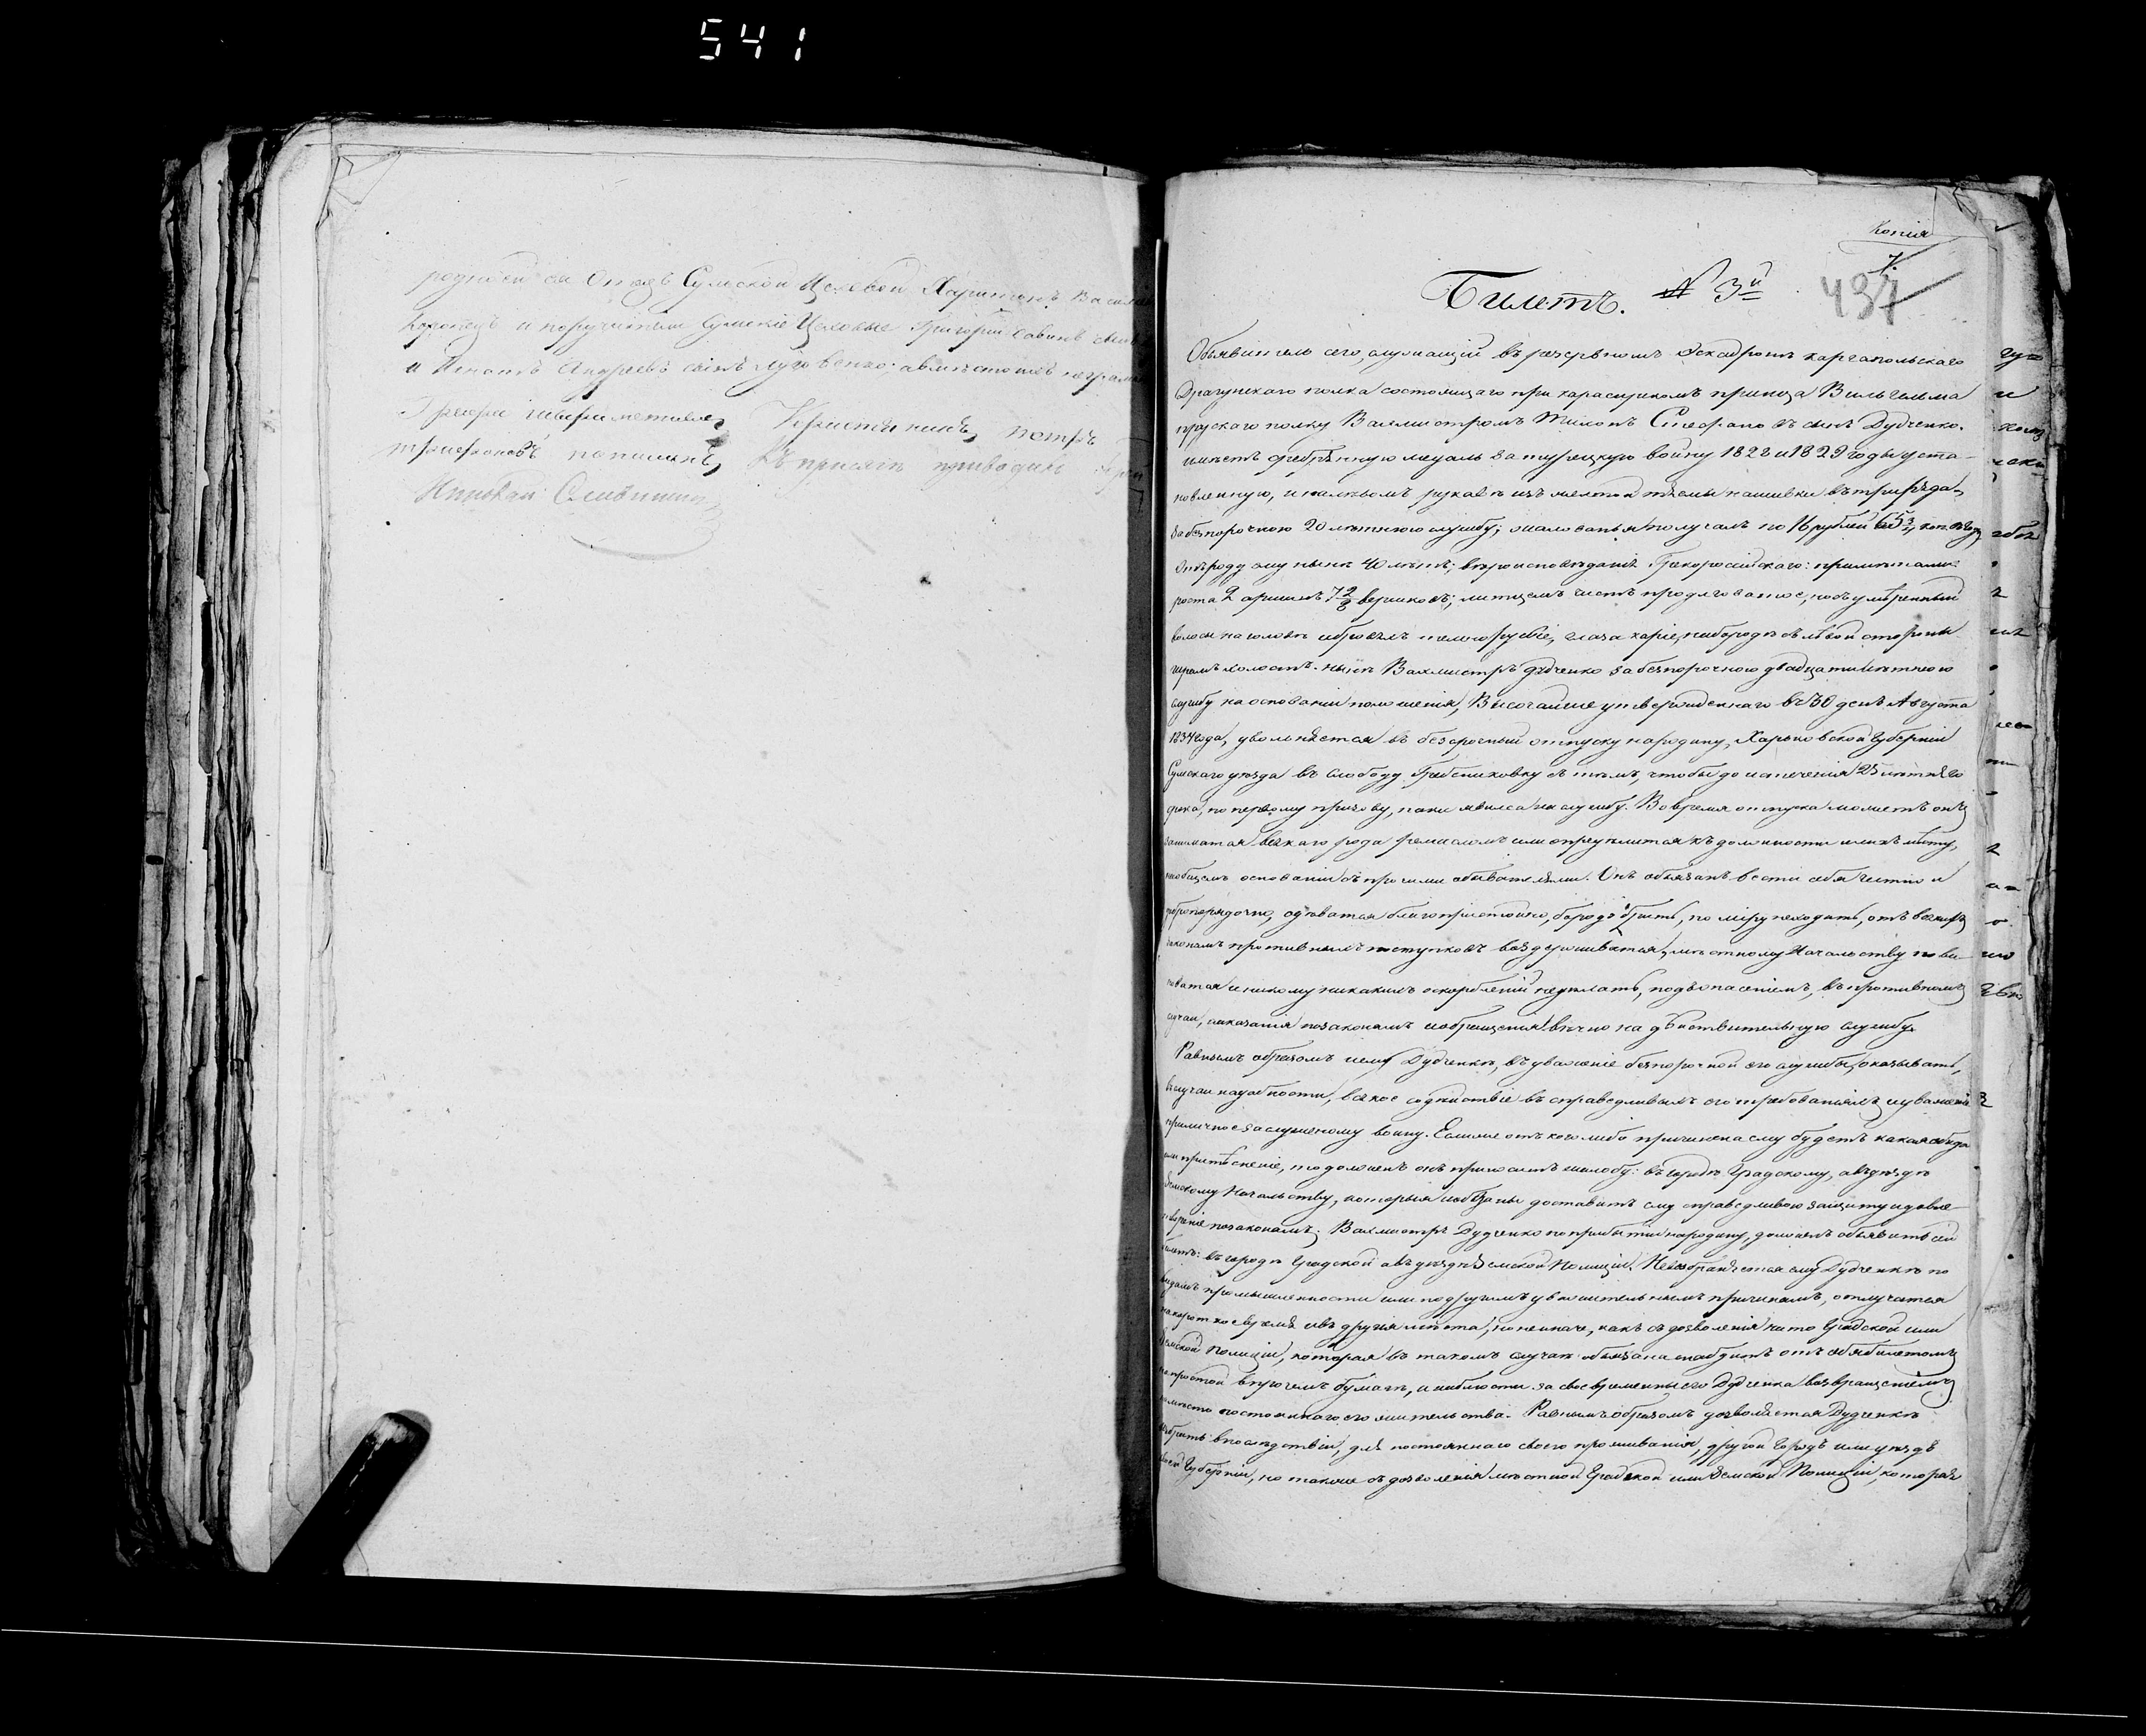 541
родной ея Отецъ Сумской Цеховой Харитонъ Василь
и поручители Сумскіе Цеховые Григорій Савинъ сынъ
и Игнатъ Андреевъ сынъ Луговенко; а вместо ихъ неграмо
Копія
Билетъ. № 3й
437
Объявитель сего, служащій въ резервномъ Эскадронѣ Каргапольскаго
Драгунскаго полка состоящаго при Кирасирскомъ принца Вильгельма
прускаго полку Вахмистромъ Тихонъ Стефановъ сынъ Дудченко.
имѣетъ серебрянную медаль за турецкую войну 1828 и 1829 годы уста-
новленную, и на лѣвомъ рукавѣ изъ желтой тесьмы нашивки въ три ряда,
за безпорочною 20 лѣтнюю службу; жалованья получалъ по 16 рублей 65 3/4 коп. въ годъ
отъ роду ему нынѣ 40 лѣтъ; вѣроисповѣданія Грекороссійскаго: примѣтами:
роста 2 аршинъ 7 2/8 вершковъ; лицемъ чистъ продолговатое, носъ умѣренный
волосы на головѣ и бровяхъ темнорусые, глаза каріе, на бородѣ съ лѣвой стороны
шрамъ холостъ. нынѣ Вахмистръ Дудченко за безпорочною двадцатилѣтнюю
службу на основаніи положенія, Высочайше утвержденнаго въ 30 день Августа
1834 года, увольняется въ безсрочный отпускъ на родину, Харьковской Губерніи
Сумскаго уезда въ слободу Гребениковку съ темъ, чтобы до истеченія 25 лѣтняго
срока, по первому призову, паки явился на службу. Во время отпуска можетъ онъ
заниматся всякаго рода ремесломъ или опредѣлится къ должности или къ мѣсту,
на общемъ основаніи съ прочими обывателями. Онъ обязанъ вести себя честно и
добропорядочно, одѣватся благопристойно, бороду брить, по міру неходить, отъ всякихъ
законамъ противныхъ поступковъ воздерживатся, мѣстному Начальству пови-
новатся и никому никакихъ оскорбленій недѣлать, подъ опасеніемъ, въ противномъ
случаи, наказанія по законамъ и обращенія вѣчно на дѣйствительную службу.
Равнымъ образомъ и ему Дудченкѣ, въ уваженіе безпорочной его службы, оказывать,
въ случаи надобности, всякое содѣйствіе въ справедливыхъ его требованіяхъ и уваженіе
приличное заслуженому воину. Если же отъ кого либо причинена ему будетъ какая обида
или притѣсненіе, то долженъ онъ принесть жалобу: въ городѣ Градскому, а въ уѣздѣ
Земскому Начальству, которыя и обязаны доставить ему справедливою защиту и удовле-
твореніе по законамъ. Вахмистръ Дудченко по прибытіи на родину, долженъ объявить сей
билетъ: въ городѣ Градской а въ уѣздѣ Земской Полиціи. Невозбраняется ему Дудченкѣ по
видамъ промышленности или подругимъ уважительнымъ причинамъ, отлучатся
на короткое время и въ другія мѣста, но неиначе, какъ съ дозволенія на то Градской или
Земской Полиціи, которая въ такомъ случаѣ обязана снабдить его отъ себя билетомъ
на простой впрочемъ бумагѣ, и наблюсти за своевременнымъ его Дудченка возвращеніемъ
къ мѣсту постояннаго его жительства. Равнымъ образомъ дозволяется Дудченкѣ
избрать въ послѣдствіи, для постояннаго своего проживанія, другой городъ или уездъ
своей Губерніи, но также съ дозволенія мѣстной Градской или Земской Полиціи, которая